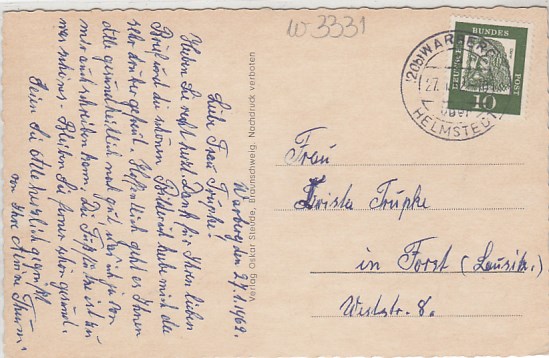 W 3331
(20b) WARBERG
über
HELMSTEDT
DEUTSCHE
BUNDES
POST
10
Warberg den 27.1.1962.
Liebe Frau Trupke!
Haben Sie recht herzl. Dank für Ihren lieben
Brief und die schönen Bilder ich habe mich da
sehr drüber gefreut. Hoffentlich geht es Ihnen
alle gesundheitlich noch gut, was ich ja von
mir auch schreiben kann. Die
war schön. Bleiben Sie ferner schön gesund.
Seien Sie Alle herzlich gegrüßt
von Ihre
Verlag Oskar Stedde, Braunschweig. Nachdruck verboten
Frau
Krista Trupke
in Forst (Lausitz.)
Weststr. 8a.